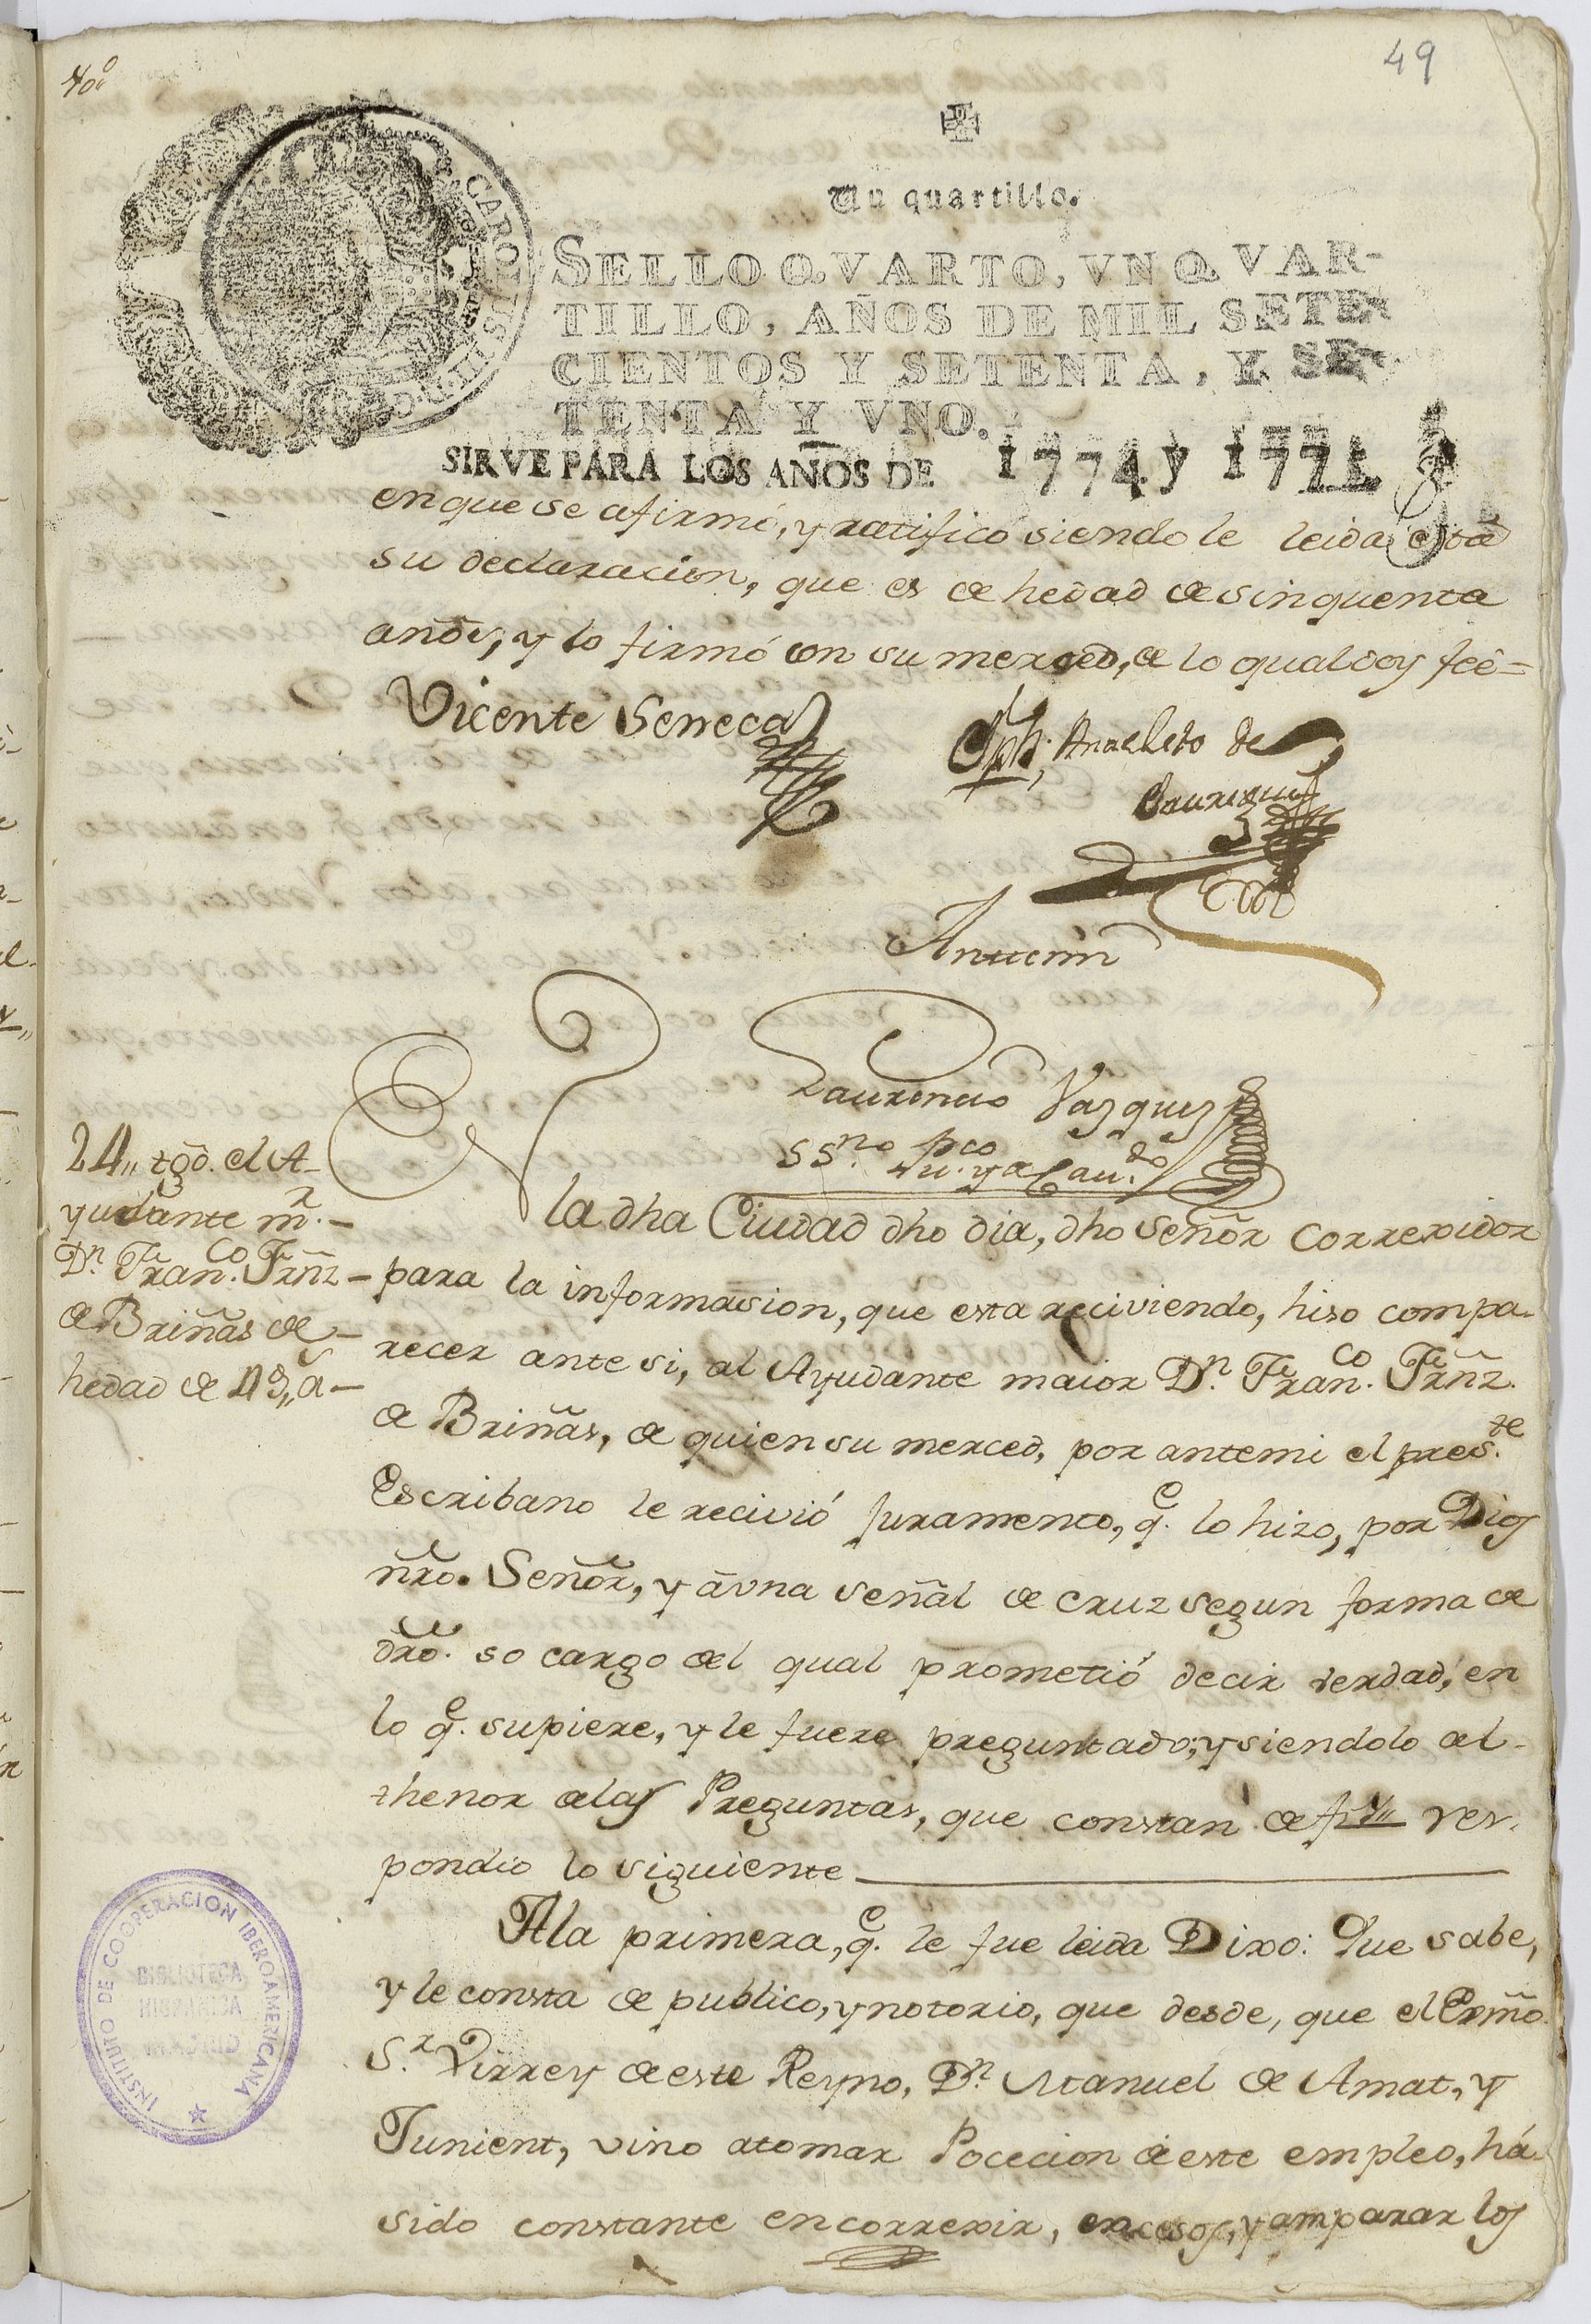 49
40„
Un quartillo.
SELLO QVARTO, VN QVAR-
TILLO, AÑOS DE MIL SETE-
CIENTOS Y SETENTA, Y SE-
TENTA Y VNO.
SIRVE PARA LOS AÑOS DE 1774 y 1775
CAROLUS III D G
enque se afirmó, y ratificó siendo le leida esta
su declaracion, que es de hedad de sinquenta
anõs, y lo firmó con su merced, de lo qual doy feè =
Vicente Seneca
Jph. Anacleto de
Jauregui
Antemi
Laurencio Vazquez
SS.no pco
pu. y de Cau.do
24„ tgo. el A-
yudante m.r -
Dn. Fran.co Frñz -
de Briñas de -
hedad de 49„ a -
En la dha Ciudad dho dia, dho Señor Correxidor
para la informasion, que esta reciviendo, hiso compa-
recer ante si, al Ayudante maior Dn. Fran.co Frñz.
de Briñas, de quien su merced, por antemi el pres.te
Escribano le recivió Juramento, q.e lo hizo, por Dios
nro. Señor, y à vna señal de cruz segun forma de
dro. so cargo del qual prometió decir verdad, en
lo q.e supiere, y le fuere preguntado; y siendolo al-
thenor delas Preguntas, que constan de f1„ res-
pondio lo siguiente
Ala primera, q.e le fue leida Dixo: Que sabe,
y le consta de publico, y notorio, que desde, que el Exmo.
S.r Virrey de este Reyno, Dn. Manuel de Amat, y
Junient, vino atomar Pocecion de este empleo, há
sido constante en correxir, excesos, y amparar los
INSTITUTO DE COOPERACION IBEROAMERICANA
BIBLIOTECA
HISPANICA
MADRID